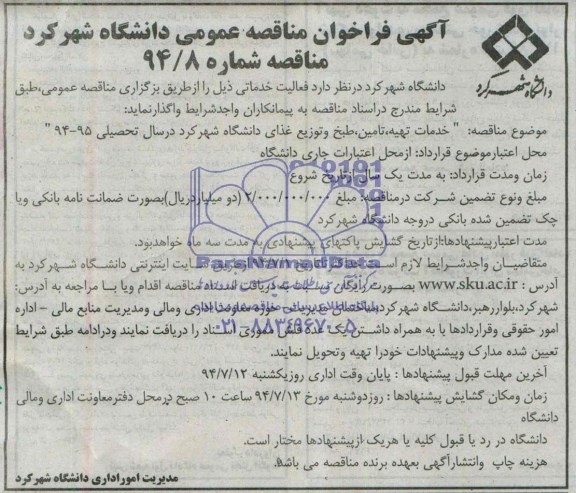 آگهی فراخوان مناقصه عمومی دانشگاه شهرکرد
مناقصه شماره ۹۴/۸
دانشگاه شهرکرد
دانشگاه شهرکرد درنظر دارد فعالیت خدماتی ذیل را ازطریق بزگزاری مناقصه عمومی،طبق
شرایط مندرج دراسناد مناقصه به پیمانکاران واجدشرایط واگذارنماید:
موضوع مناقصه: " خدمات تهیه،تامین،طبخ وتوزیع غذای دانشگاه شهرکرد درسال تحصیلی ۹۵-۹۴ "
محل اعتبارموضوع قرارداد: ازمحل اعتبارات جاری دانشگاه
زمان ومدت قرارداد: به مدت یک سال ازتاریخ شروع
مبلغ ونوع تضمین شرکت درمناقصه: مبلغ ۲/۰۰۰/۰۰۰/۰۰۰ (دو میلیاردریال)بصورت ضمانت نامه بانکی ویا
چک تضمین شده بانکی دروجه دانشگاه شهرکرد
مدت اعتبارپیشنهادها:ازتاریخ گشایش پاکتهای پیشنهادی به مدت سه ماه خواهدبود.
متقاضیان واجدشرایط لازم است سایت اینترنتی دانشگاه شهرکرد به
آدرس : www.sku.ac.ir بصورت رایگان نسبت به دریافت اسناد مناقصه اقدام ویا با مراجعه به آدرس:
شهرکرد،بلواررهبر،دانشگاه شهرکرد،ساختمان مدیریت،حوزه معاونت اداری ومالی ومدیریت منابع مالی - اداره
امور حقوقی وقراردادها با به همراه داشتن یک عدد فلش مموری اسناد را دریافت نمایند ودرادامه طبق شرایط
تعیین شده مدارک وپیشنهادات خودرا تهیه وتحویل نمایند.
آخرین مهلت قبول پیشنهادها : پایان وقت اداری روزیکشنبه ۹۴/۷/۱۲
زمان ومکان گشایش پیشنهادها : روزدوشنبه مورخ ۹۴/۷/۱۳ ساعت ۱۰ صبح درمحل دفترمعاونت اداری ومالی
دانشگاه
دانشگاه در رد یا قبول کلیه یا هریک ازپیشنهادها مختار است.
هزینه چاپ وانتشارآگهی بعهده برنده مناقصه می باشد.
مدیریت اموراداری دانشگاه شهرکرد
ParsNamadData
۰۲۱-۸۸۳۴۹۶۷۰-۵